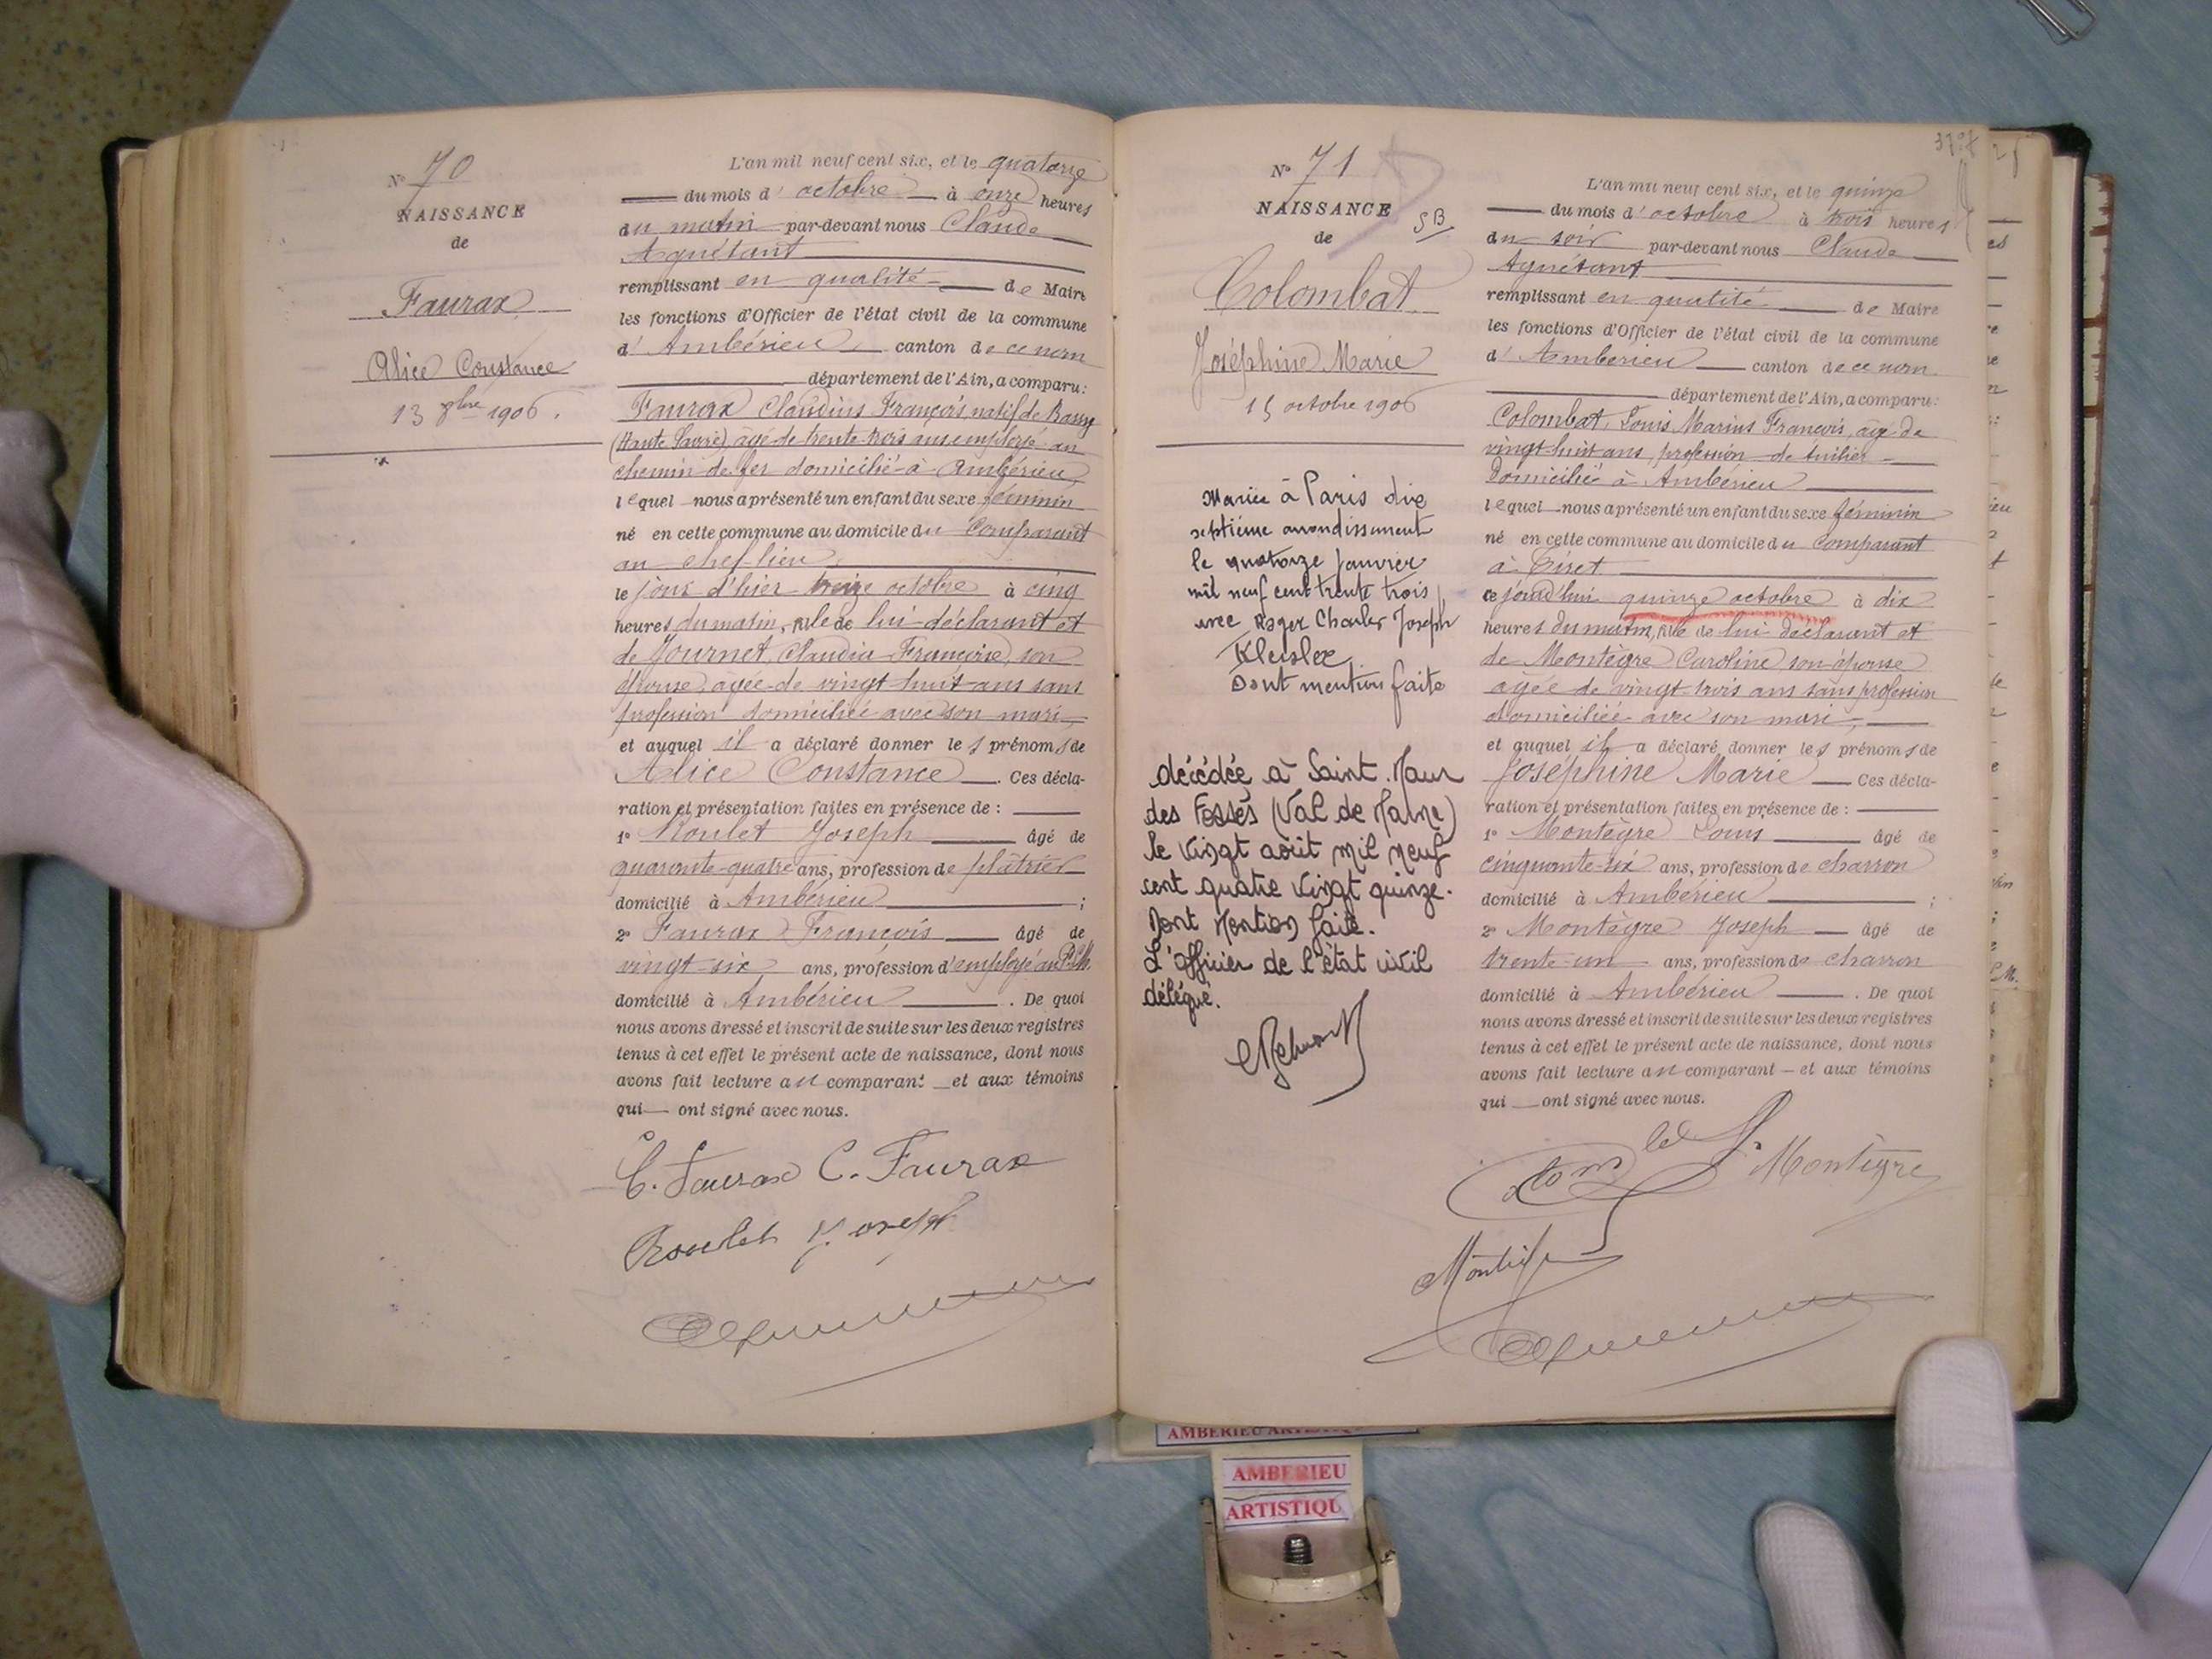 Nº 70
NAISSANCE
de
Faurax
Alice Constance
13 8bre 1906.
L'an mil neuf cent six, et le quatorze
du mois d'octobre à onze heures
du matin par-devant nous Claude
Aguétant
remplissant en qualité de Maire
les fonctions d'Officier de l'état civil de la commune
d'Ambérieu canton de ce nom
département de l'Ain, a comparu:
Faurax Claudius François, natif de Bassy
(Haute Savoie), âgé de trente trois ans employé au
chemin de fer domicilié à Ambérieu,
lequel nous a présenté un enfant du sexe féminin
né en cette commune au domicile du comparant
au chef-lieu
le jour d'hier treize octobre à cinq
heures du matin, fille de lui déclarant et
de Journet, Claudia Françoise, son
épouse, âgée de vingt huit ans sans
profession domiciliée avec son mari,
et auquel il a déclaré donner les prénoms de
Alice Constance. Ces décla-
ration et présentation faites en présence de :
1º Roulet Joseph âgé de
quarante-quatre ans, profession de plâtrier
domicilié à Ambérieu ;
2º Faurax François âgé de
vingt-six ans, profession d'employé au P.L.M.
domicilié à Ambérieu. De quoi
nous avons dressé et inscrit de suite sur les deux registres
tenus à cet effet le présent acte de naissance, dont nous
avons fait lecture au comparant et aux témoins
qui ont signé avec nous.
C. Faurax C. Faurax
Roulet Joseph
Nº 71
NAISSANCE
de
SB
Colombat
Joséphine Marie
15 octobre 1906
Mariée à Paris dix
septième arrondissement
le quatorze Janvier
mil neuf cent trente trois
avec Roger Charles Joseph
Dont mention faite
décédée à Saint.Maur
des Fossés (Val de Marne)
le vingt août mil neuf
cent quatre vingt quinze.
Dont Mention faite.
L'officier de l'état civil
délégué.
L'an mil neuf cent six, et le quinze
du mois d'octobre à trois heures
du soir par-devant nous Claude
Aguétant
remplissant en qualité de Maire
les fonctions d'Officier de l'état civil de la commune
d'Ambérieu canton de ce nom
département de l'Ain, a comparu:
Colombat, Louis Marius François, âgé de
vingt-huit ans, profession de tuilier
domicilié à Ambérieu
lequel nous a présenté un enfant du sexe féminin
né en cette commune au domicile du comparant
à Tiret
ce jourd'hui quinze octobre à dix
heures du matin, fille de lui déclarant et
de Montègre Caroline son épouse
âgée de vingt-trois ans sans profession
domiciliée avec son mari,
et auquel il a déclaré donner les prénoms de
Joséphine Marie Ces décla-
ration et présentation faites en présence de :
1º Montègre Louis âgé de
cinquante-six ans, profession de charron
domicilié à Ambérieu ;
2º Montègre Joseph âgé de
trente-un ans, profession de charron
domicilié à Ambérieu. De quoi
nous avons dressé et inscrit de suite sur les deux registres
tenus à cet effet le présent acte de naissance, dont nous
avons fait lecture au comparant et aux témoins
qui ont signé avec nous.
Montègre
AMBERIEU
AMBERIEU
ARTISTIQU